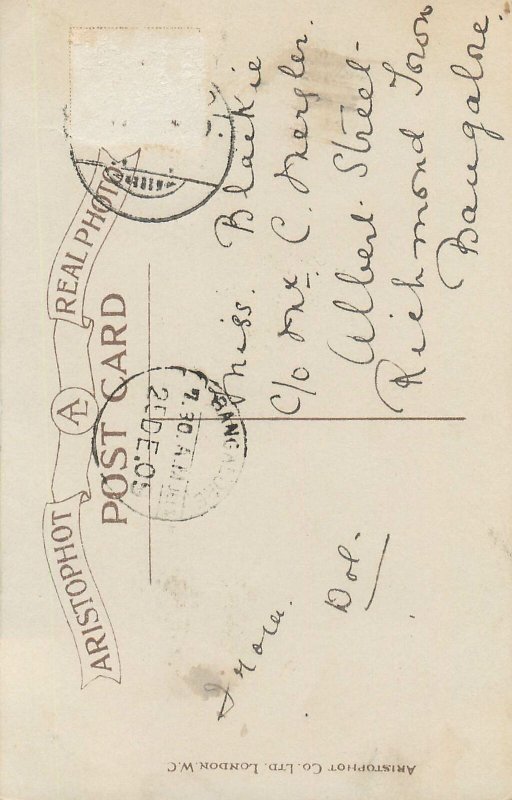 ARISTOPHOT AL REAL PHOTO
POST CARD
BANGALORE
7.30.A.M
25DE.09
From
Dol.
Miss. Blackie
C/o Mr. C.
Albert Street.
Richmond Town
Bangalore.
ARISTOPHOT CO. LTD. LONDON. W.C